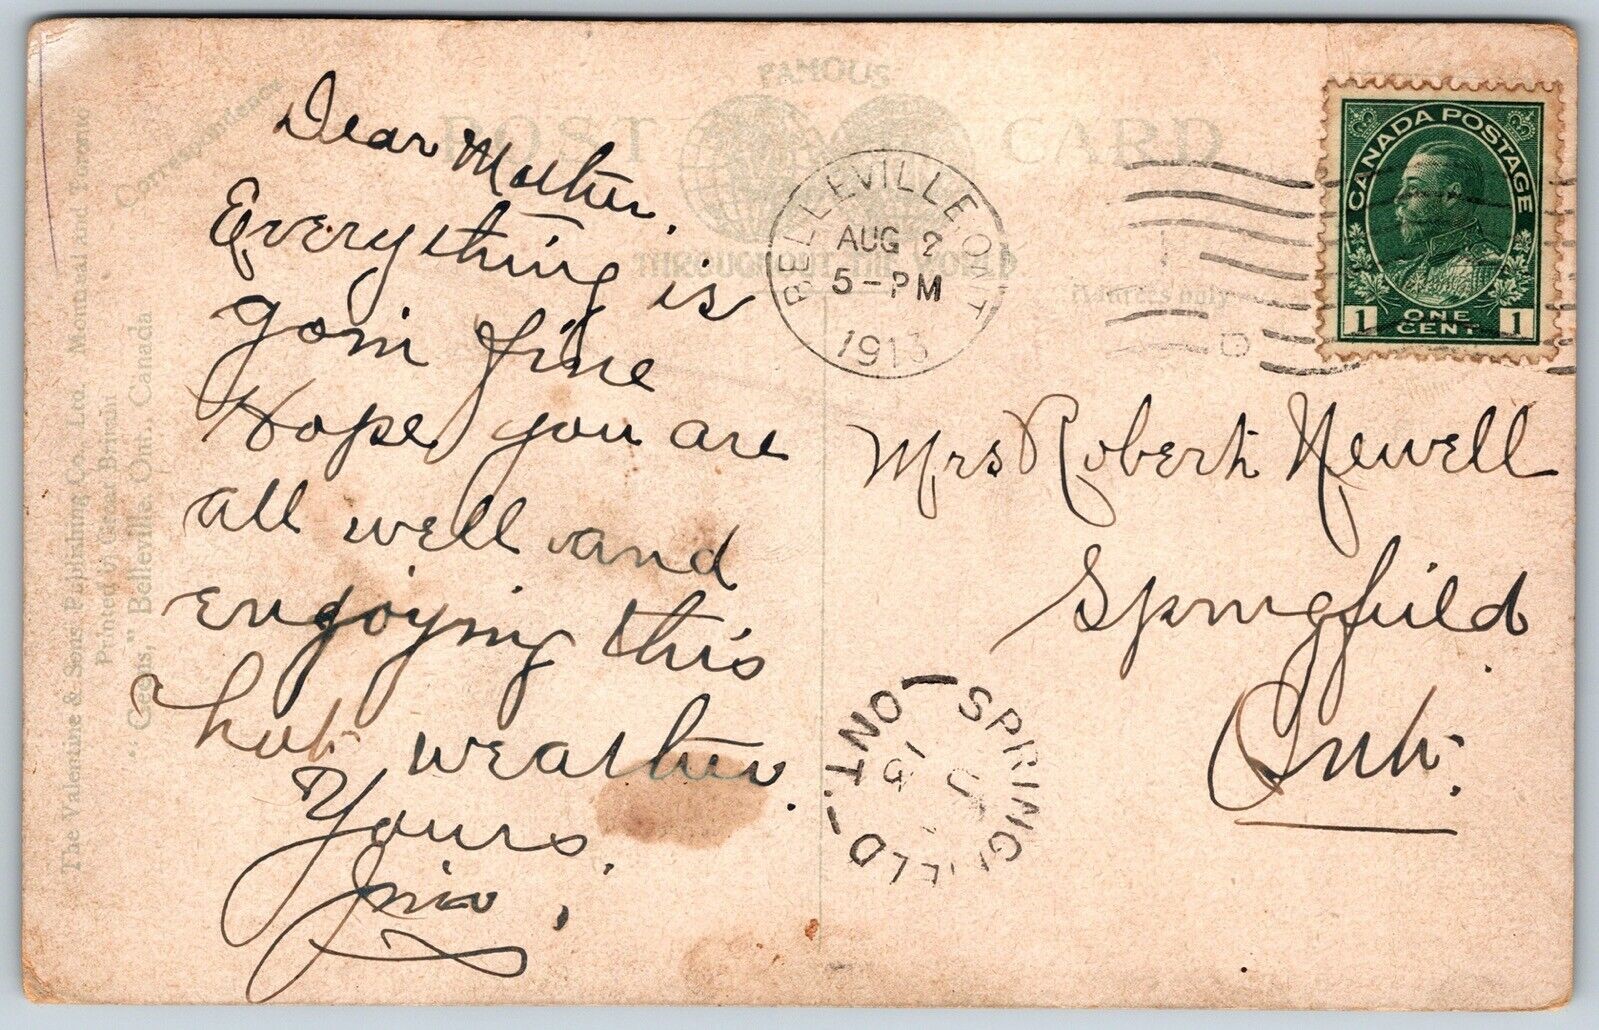 FAMOUS
POST CARD
THROUGHOUT THE WORLD
Correspondence
The Valentine & Sons Publishing Co., Ltd. Montreal and Toronto
Printed in Great Britain
"Geens," Belleville, Ont., Canada
Dear Mother.
Everything is
goin fine
Hope you are
all well and
enjoying this
hot weather.
Yours.
BELLEVILLE, ONT
AUG 2
5-PM
1913
CANADA POSTAGE
1 ONE CENT 1
Mrs Robert Newell
Springfield
Ont.
SPRINGFIELD ONT.
13